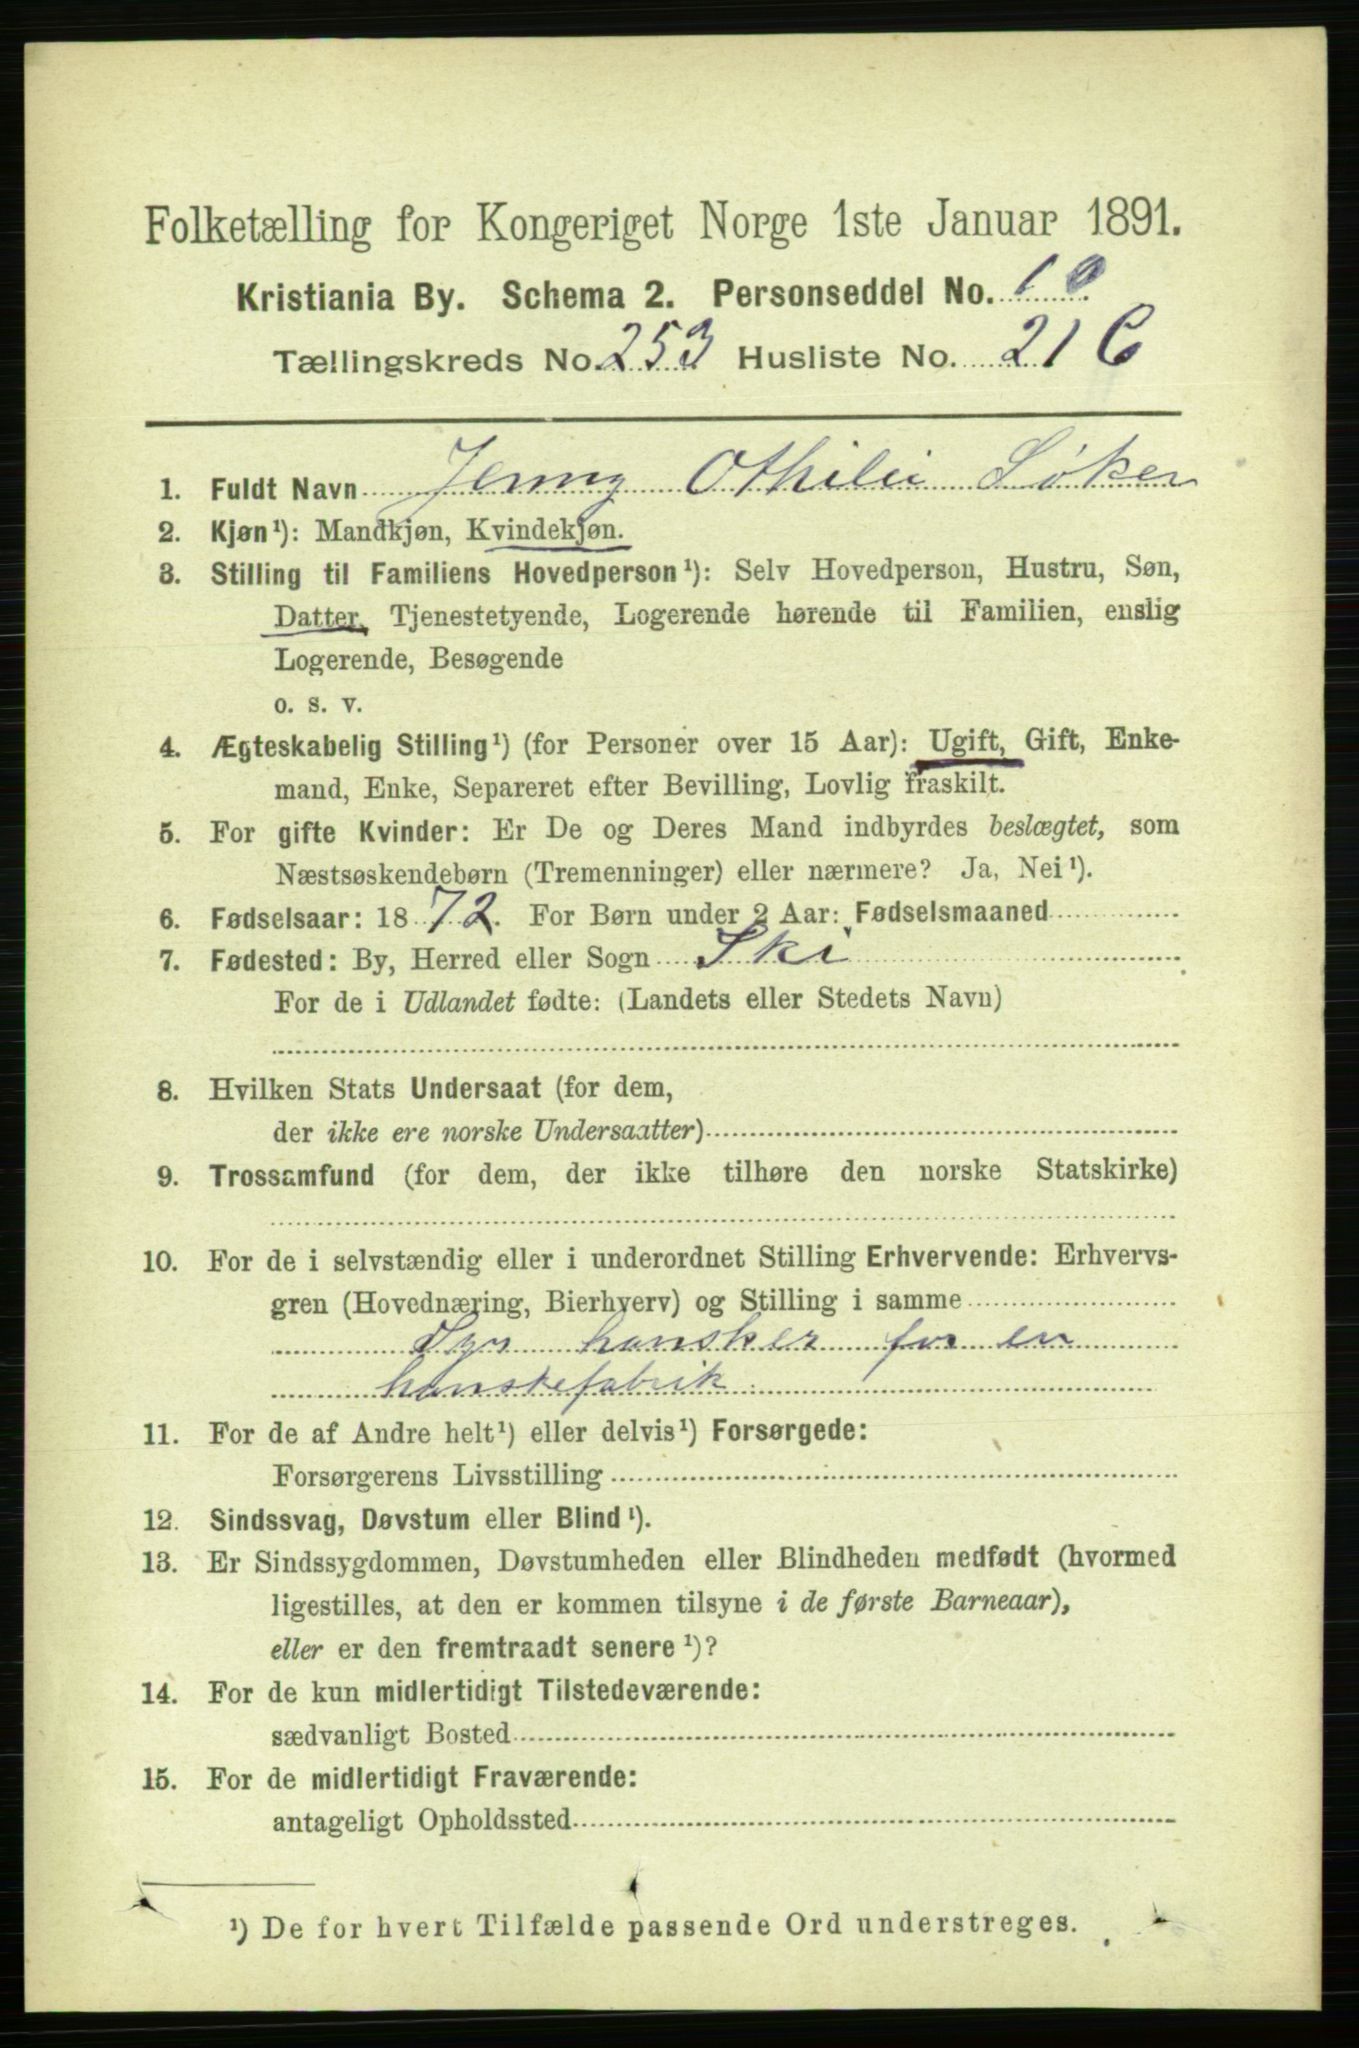 Folketælling for Kongeriget Norge 1ste Januar 1891.
Kristiania By. Schema 2. Personseddel No. 10
Tællingskreds No. 253 Husliste No. 21 C
1. Fuldt Navn Jenny Othilie Søker
2. Kjøn¹): Mandkjøn, Kvindekjøn.
3. Stilling til Familiens Hovedperson¹): Selv Hovedperson, Hustru, Søn,
Datter, Tjenestetyende, Logerende hørende til Familien, enslig
Logerende, Besøgende
o. s. v.
4. Ægteskabelig Stilling¹) (for Personer over 15 Aar): Ugift, Gift, Enke-
mand, Enke, Separeret efter Bevilling, Lovlig fraskilt.
5. For gifte Kvinder: Er De og Deres Mand indbyrdes beslægtet, som
Næstsøskendebørn (Tremenninger) eller nærmere? Ja, Nei¹).
6. Fødselsaar: 1872. For Børn under 2 Aar: Fødselsmaaned
7. Fødested: By, Herred eller Sogn Ski
For de i Udlandet fødte: (Landets eller Stedets Navn)
8. Hvilken Stats Undersaat (for dem,
der ikke ere norske Undersaatter)
9. Trossamfund (for dem, der ikke tilhøre den norske Statskirke)
10. For de i selvstændig eller i underordnet Stilling Erhvervende: Erhvervs-
gren (Hovednæring, Bierhverv) og Stilling i samme
Syr hansker for en
hanskefabrik
11. For de af Andre helt¹) eller delvis¹) Forsørgede:
Forsørgerens Livsstilling
12. Sindssvag, Døvstum eller Blind¹).
13. Er Sindssygdommen, Døvstumheden eller Blindheden medfødt (hvormed
ligestilles, at den er kommen tilsyne i de første Barneaar),
eller er den fremtraadt senere¹)?
14. For de kun midlertidigt Tilstedeværende:
sædvanligt Bosted
15. For de midlertidigt Fraværende:
antageligt Opholdssted
¹) De for hvert Tilfælde passende Ord understreges.